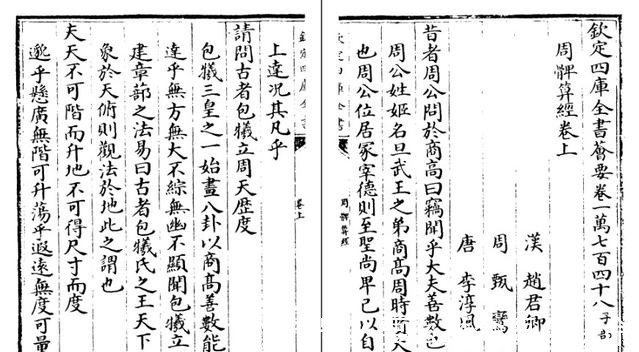 欽定四庫全書薈要卷一萬七百四十八子部
周髀算經卷上
漢趙君卿
周甄鸞
唐李淳風
昔者周公問於商高曰竊聞乎大夫善數也
周公姓姬名旦武王之弟商高周時
也周公位居冢宰德則至聖尚卑己以自
欽定四庫全書
周髀算經
卷上
上達況其凡乎
請問古者包犧立周天歷度
包犧三皇之一始畫八卦以商高善數能
達乎無方無大不綜無幽不顯聞包犧立
建章蔀之法易曰古者包犧氏之王天下
象於天俯則觀法於地此之謂也
夫天不可階而升地不可得尺寸而度
邈乎懸廣無階可升蕩乎遐遠無度可量